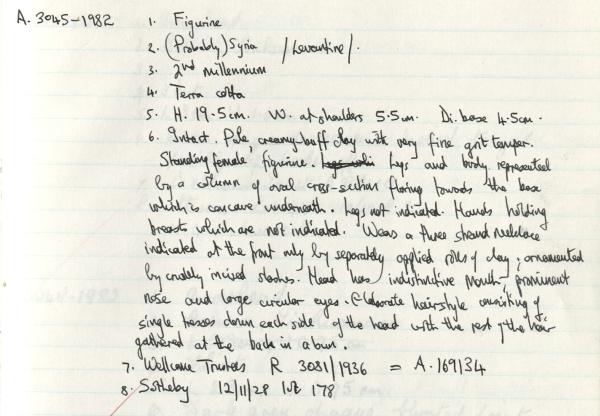 A. 3045-1982 1. Figurine
2. (Probably) Syria /Levantine/.
3. 2nd millennium
4. Terra cotta
5. H. 19.5cm. W. at shoulders 5.5cm. Di. base 4.5cm.
6. Intact. Pale, creamy-buff clay with very fine grit temper.
Standing female figurine. Legs and body represented
by a column of oval cross-section flaring towards the base
which is concave underneath. Legs not indicated. Hands holding
breasts which are not indicated. Wears a three strand necklace
indicated at the front only by separately applied rolls of clay, ornamented
by crudely incised slashes. Head has indistinctive mouth, prominent
nose and large circular eyes. Elaborate hairstyle consisting of
single tresses down each side of the head with the rest of the hair
gathered at the back in a bun.
7. Wellcome Trustees R 3081/1936 = A.169134
8. Sotheby 12/11/28 lot 178